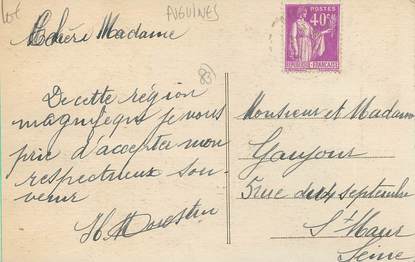 Lot
AIGUINES
83
Chère Madame
De cette région
magnifique je vous
prie d'accepter mon
respectueux sou-
venir
POSTES
40c
REPUBLIQUE FRANÇAISE
Monsieur et Madame
Gaujour
5 rue du 4 septembre
St Maur
Seine